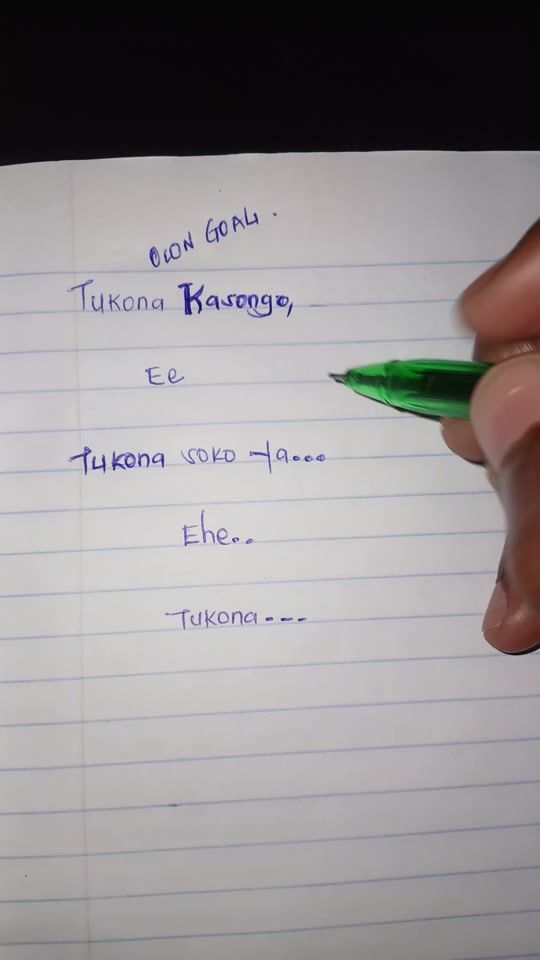 OWN GOAL.
Tukona Kasongo,
Ee
Tukona soko ya...
Ehe..
Tukona ---